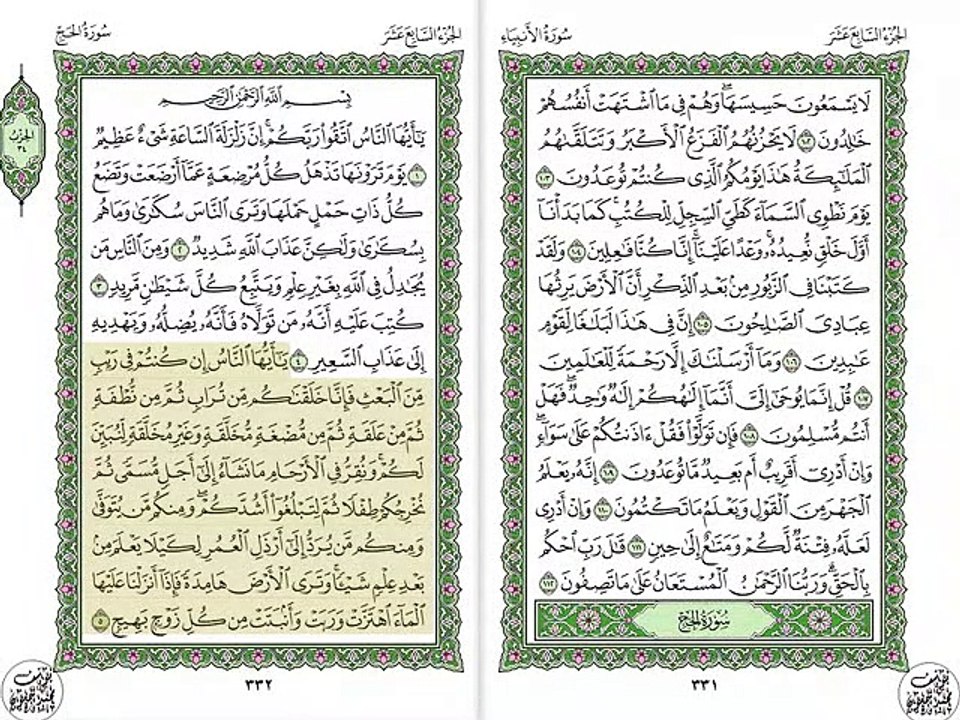 الجزء السابع عشر
سورة الأنبياء
لَا يَسْمَعُونَ حَسِيسَهَا ۖ وَهُمْ فِي مَا اشْتَهَتْ أَنفُسُهُمْ
خَالِدُونَ ١٠٢ لَا يَحْزُنُهُمُ الْفَزَعُ الْأَكْبَرُ وَتَتَلَقَّاهُمُ
الْمَلَائِكَةُ هَٰذَا يَوْمُكُمُ الَّذِي كُنتُمْ تُوعَدُونَ ١٠٣
يَوْمَ نَطْوِي السَّمَاءَ كَطَيِّ السِّجِلِّ لِلْكُتُبِ ۚ كَمَا بَدَأْنَا
أَوَّلَ خَلْقٍ نُّعِيدُهُ ۚ وَعْدًا عَلَيْنَا ۚ إِنَّا كُنَّا فَاعِلِينَ ١٠٤ وَلَقَدْ
كَتَبْنَا فِي الزَّبُورِ مِن بَعْدِ الذِّكْرِ أَنَّ الْأَرْضَ يَرِثُهَا
عِبَادِيَ الصَّالِحُونَ ١٠٥ إِنَّ فِي هَٰذَا لَبَلَاغًا لِّقَوْمٍ
عَابِدِينَ ١٠٦ وَمَا أَرْسَلْنَاكَ إِلَّا رَحْمَةً لِّلْعَالَمِينَ
١٠٧ قُلْ إِنَّمَا يُوحَىٰ إِلَيَّ أَنَّمَا إِلَٰهُكُمْ إِلَٰهٌ وَاحِدٌ ۖ فَهَلْ
أَنتُم مُّسْلِمُونَ ١٠٨ فَإِن تَوَلَّوْا فَقُلْ آذَنتُكُمْ عَلَىٰ سَوَاءٍ ۖ
وَإِنْ أَدْرِي أَقَرِيبٌ أَم بَعِيدٌ مَّا تُوعَدُونَ ١٠٩ إِنَّهُ يَعْلَمُ
الْجَهْرَ مِنَ الْقَوْلِ وَيَعْلَمُ مَا تَكْتُمُونَ ١١٠ وَإِنْ أَدْرِي
لَعَلَّهُ فِتْنَةٌ لَّكُمْ وَمَتَاعٌ إِلَىٰ حِينٍ ١١١ قَالَ رَبِّ احْكُم
بِالْحَقِّ ۗ وَرَبُّنَا الرَّحْمَٰنُ الْمُسْتَعَانُ عَلَىٰ مَا تَصِفُونَ ١١٢
سورة الحج
٣٣١
الجزء السابع عشر
سورة الحج
الحزب
٣٤
بِسْمِ اللَّهِ الرَّحْمَٰنِ الرَّحِيمِ
يَا أَيُّهَا النَّاسُ اتَّقُوا رَبَّكُمْ ۚ إِنَّ زَلْزَلَةَ السَّاعَةِ شَيْءٌ عَظِيمٌ
١ يَوْمَ تَرَوْنَهَا تَذْهَلُ كُلُّ مُرْضِعَةٍ عَمَّا أَرْضَعَتْ وَتَضَعُ
كُلُّ ذَاتِ حَمْلٍ حَمْلَهَا وَتَرَى النَّاسَ سُكَارَىٰ وَمَا هُم
بِسُكَارَىٰ وَلَٰكِنَّ عَذَابَ اللَّهِ شَدِيدٌ ٢ وَمِنَ النَّاسِ مَن
يُجَادِلُ فِي اللَّهِ بِغَيْرِ عِلْمٍ وَيَتَّبِعُ كُلَّ شَيْطَانٍ مَّرِيدٍ ٣
كُتِبَ عَلَيْهِ أَنَّهُ مَن تَوَلَّاهُ فَأَنَّهُ يُضِلُّهُ وَيَهْدِيهِ
إِلَىٰ عَذَابِ السَّعِيرِ ٤ يَا أَيُّهَا النَّاسُ إِن كُنتُمْ فِي رَيْبٍ
مِّنَ الْبَعْثِ فَإِنَّا خَلَقْنَاكُم مِّن تُرَابٍ ثُمَّ مِن نُّطْفَةٍ
ثُمَّ مِنْ عَلَقَةٍ ثُمَّ مِن مُّضْغَةٍ مُّخَلَّقَةٍ وَغَيْرِ مُخَلَّقَةٍ لِّنُبَيِّنَ
لَكُمْ ۚ وَنُقِرُّ فِي الْأَرْحَامِ مَا نَشَاءُ إِلَىٰ أَجَلٍ مُّسَمًّى ثُمَّ
نُخْرِجُكُمْ طِفْلًا ثُمَّ لِتَبْلُغُوا أَشُدَّكُمْ ۖ وَمِنكُم مَّن يُتَوَفَّىٰ
وَمِنكُم مَّن يُرَدُّ إِلَىٰ أَرْذَلِ الْعُمُرِ لِكَيْلَا يَعْلَمَ مِن
بَعْدِ عِلْمٍ شَيْئًا ۚ وَتَرَى الْأَرْضَ هَامِدَةً فَإِذَا أَنزَلْنَا عَلَيْهَا
الْمَاءَ اهْتَزَّتْ وَرَبَتْ وَأَنبَتَتْ مِن كُلِّ زَوْجٍ بَهِيجٍ ٥
٣٣٢